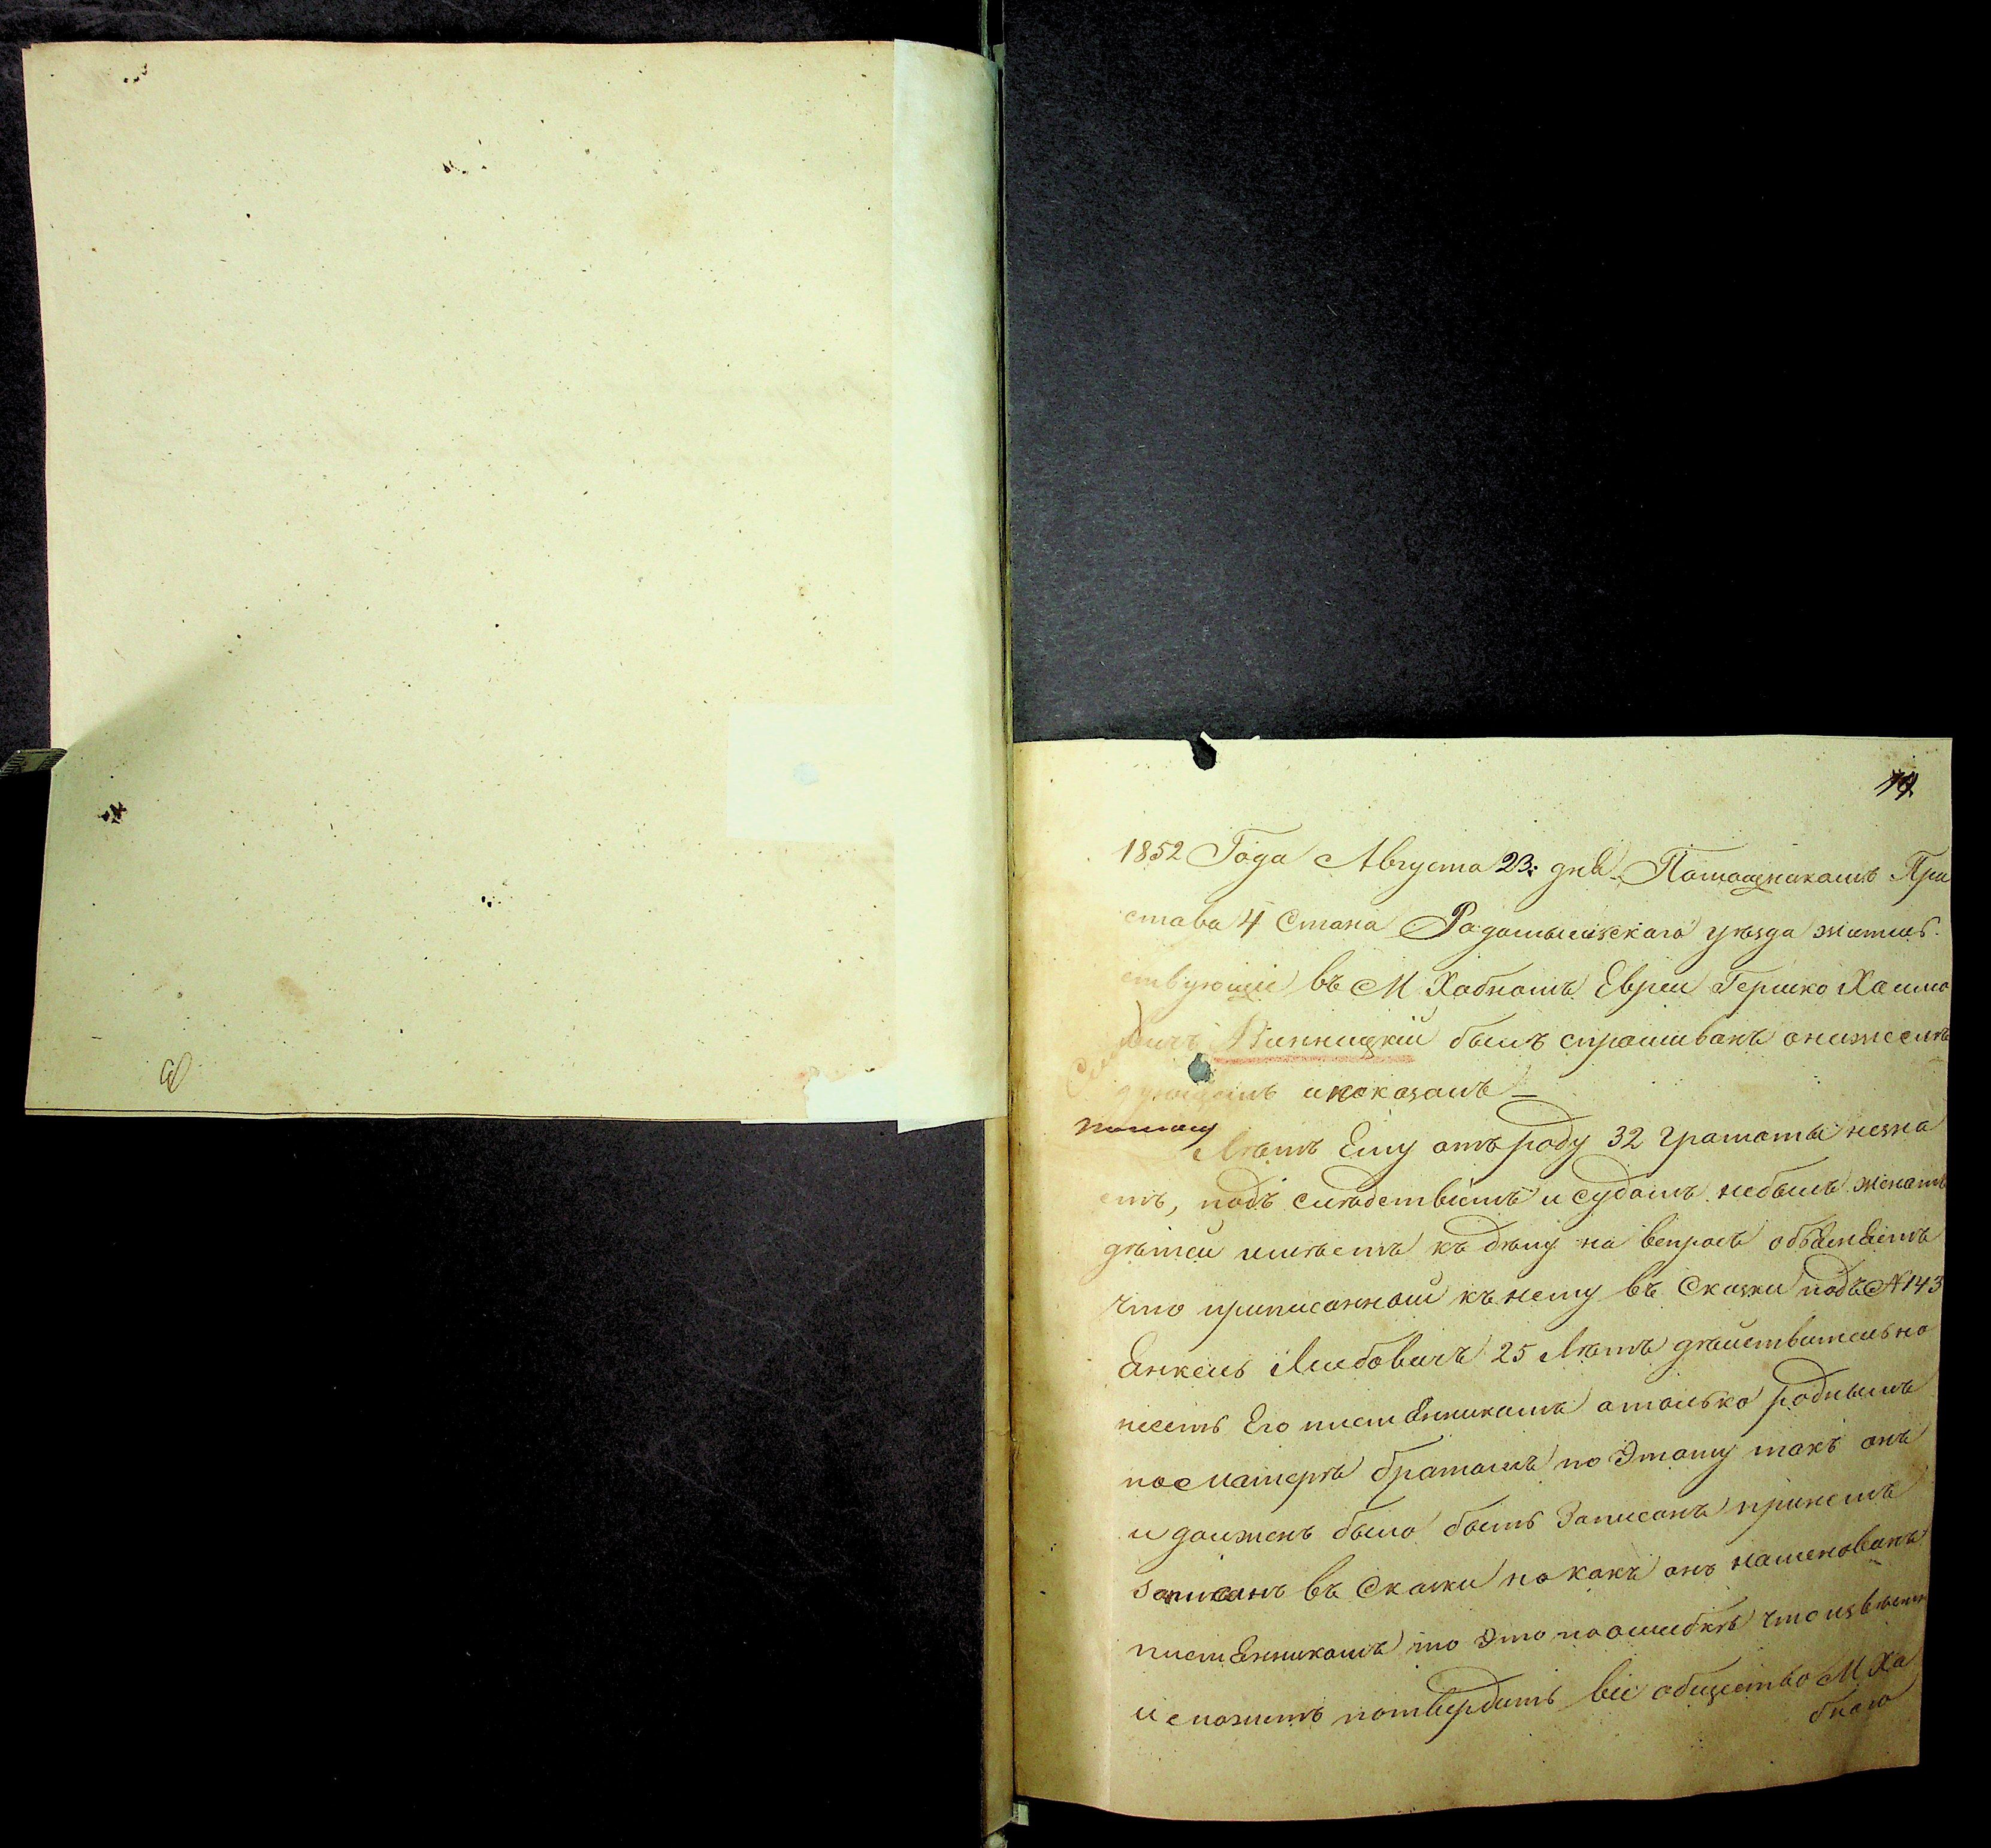 1852 Года Августа 23: дня Помощникомъ При
става 4 Стана Радомысльскаго уѣзда житель
ствующи въ М Хабномъ Евреи Гершко Хаимо
вичъ Винницкій былъ спрашиванъ онижеслѣ
дующемъ ипоказалъ
Лѣтъ Ему отъ роду 32 грамоты незна
етъ, подъ слѣдствіемъ и судомъ небылъ женатъ
дѣтеи имѣетъ къ дѣлу на вопросъ объясняетъ
что приписаннои къ нему въ Скаски подъ № 143
Енкель Лейбовичъ 25 Лѣтъ дѣиствительно
несть Его племянникомъ атолько роднымъ
поематерѣ братомъ по Этому такъ онъ
и долженъ было быть Записанъ принемъ
записанъ въ Скаски но какъ онъ наименованъ
племянникомъ то Это поошибкѣ что извѣстн
и можетъ потвердить все общество М Ха
бного